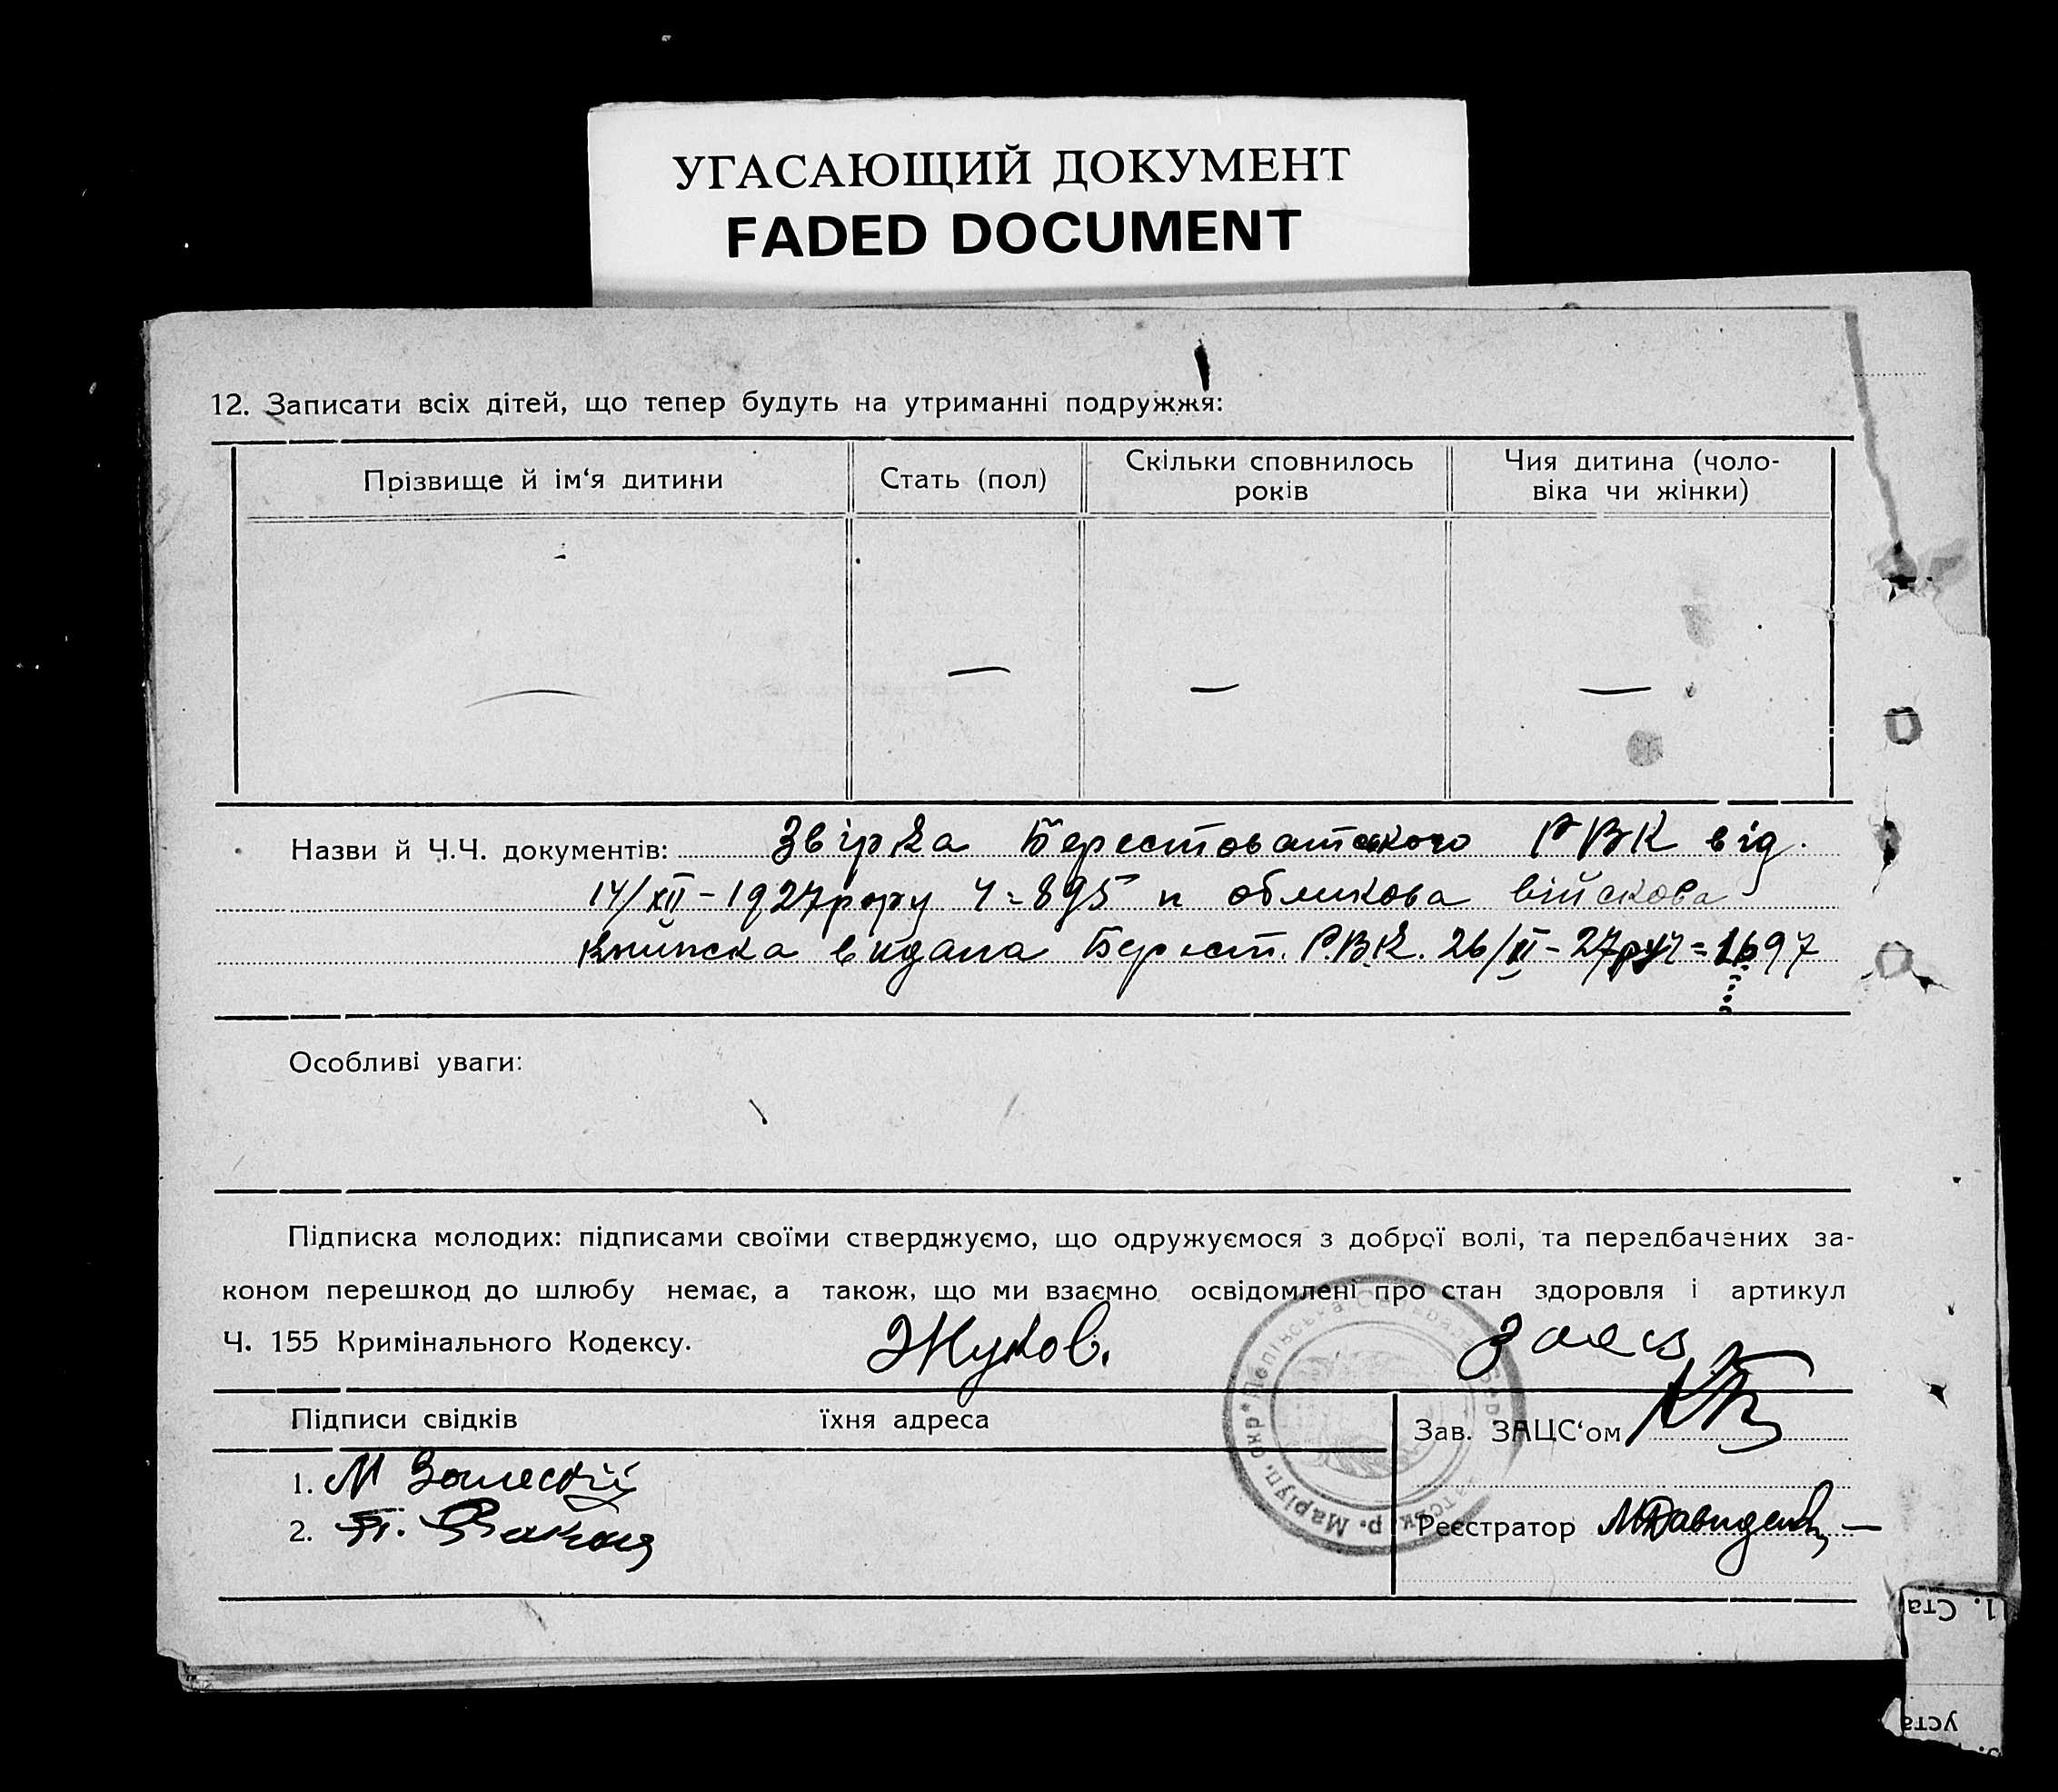 УГАСАЮЩИЙ ДОКУМЕНТ
FADED DOCUMENT
12. Записати всіх дітей, що тепер будуть на утриманні подружжя:
Прізвище й ім‘я дитини
Стать (пол)
Скільки сповнилось
років
Чия дитина (чоло-
віка чи жінки)
— — — —
Назви й Ч.Ч. документів: Звірка Берестоватського РВК від
14/XII - 1927 року Ч = 895 и обликова війскова
книжка видана Берест. Р.В.К. 26/XI - 27 р Ч = 1697
Особливі уваги:
Підписка молодих: підписами своїми стверджуємо, що одружуємося з доброї волі, та передбачених за-
коном перешкод до шлюбу немає, а також, що ми взаємно освідомлені про стан здоровля і артикул
Ч. 155 Кримінального Кодексу. Жуков. Заец
Підписи свідків їхня адреса
Зав. ЗАЦС‘ом
1. М Залескій
2. П.
Реєстратор МДавиденко
р. Маріуп. окр
1. Ста
уста